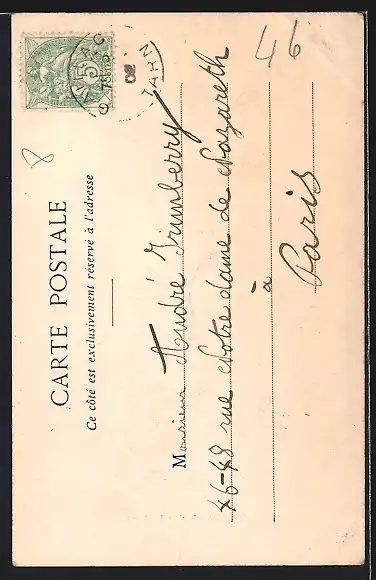 CARTE POSTALE
Ce côté est exclusivement réservé à l'adresse
Monsieur André Grumberry
46-48 rue Notre dame de Nazareth
à
Paris
46
8
5
02
TARN